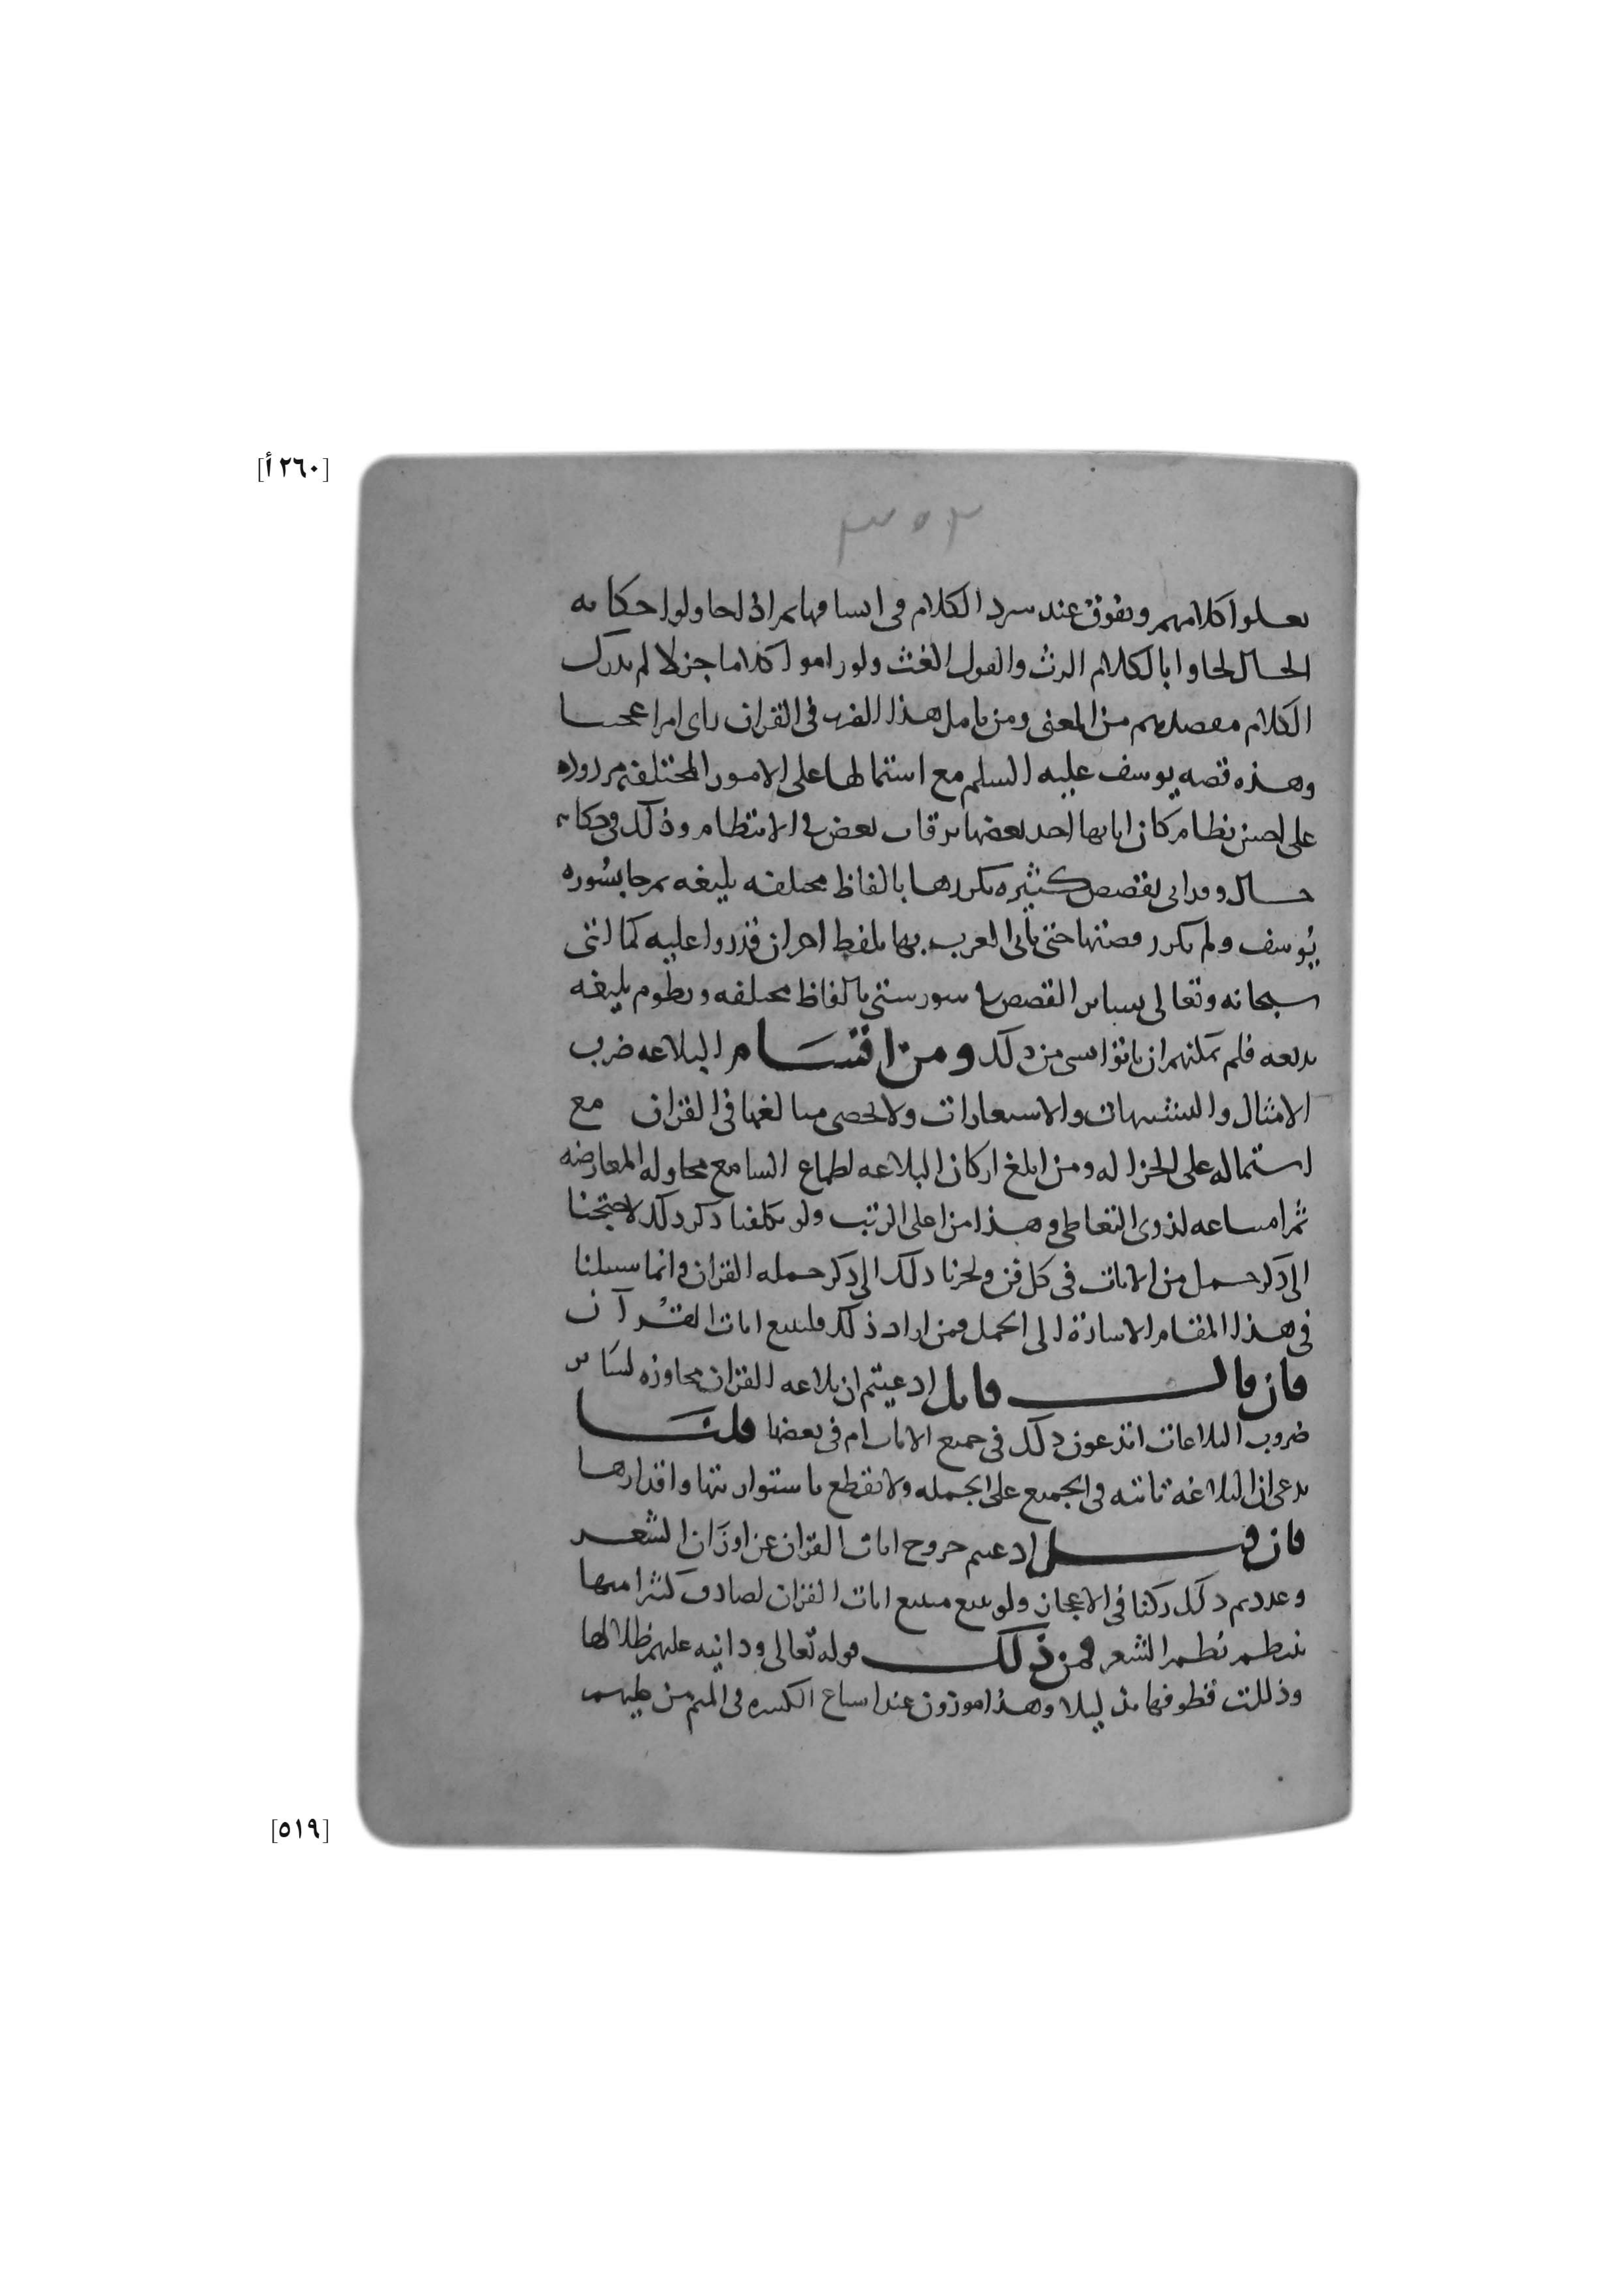 [٢٦٠ أ]
٣٥٣
يعلوا كلامهم ويفوق عند سرد الكلام في اتساقها ثم اذا حاولوا حكاية
الحال لجاوا بالكلام الرث والقول الغث ولو راموا كلاما جزلا لم يدرك
الكلام مقصدهم من المعنى ومن تامل هذا الفن في القران راى امرا عجيبا
وهذه قصه يوسف عليه السلم مع اشتمالها على الامور المختلفة مردوده
على احسن نظام كان اياتها اخذ بعضها برقاب بعض في الانتظام وذلك في حكاية
حال وقد اتى بقصص كثيره يكررها بالفاظ مختلفه بليغه ثم جا بسوره
يوسف ولم يكرر قصتها حتى ياتي العرب بها بلفظ اخر ان قدروا عليه كما اتى
سبحانه وتعالى بساير القصص في سور ستى بالفاظ مختلفه ونظوم بليغه
بديعه فلم يمكنهم ان ياتوا بسى من ذلك ومن اقسام البلاغه ضرب
الامثال والتشبيهات والاستعارات ولا تحصى مبالغها في القران مع
اشتماله على الجزاله ومن ابلغ اركان البلاغه اطماع السامع محاوله المعارضه
ثم امتناعه لذوي التعاطي وهذا من اعلى الرتب ولو تكلفنا ذكر ذلك لاحتجنا
الى ذكر جمل من الايات في كل فن ولجرنا ذلك الى ذكر جمله القران وانما سبيلنا
في هذا المقام الاشارة الى الجمل ومن اراد ذلك فليتتبع ايات القرآن
فان قال قايل ادعيتم ان بلاغه القران مجاوزه لساير
ضروب البلاغات اتدعون ذلك في جميع الايات ام في بعضها قلنا
ندعي ان البلاغة ثابتة في الجميع على الجمله ولا نقطع باستواء رتبها واقدارها
فان قيل ادعيتم خروج ايات القران عن اوزان الشعر
وعددتم ذلك ركنا في الاعجاز ولو تتبع متتبع ايات القران لصادف كثيرا منها
ينتظم نظم الشعر فمن ذلك قوله تعالى ودانيه عليهم ظلالها
وذللت قطوفها تذليلا وهذا موزون عند اشباع الكسره في الميم من عليهم
[٥١٩]